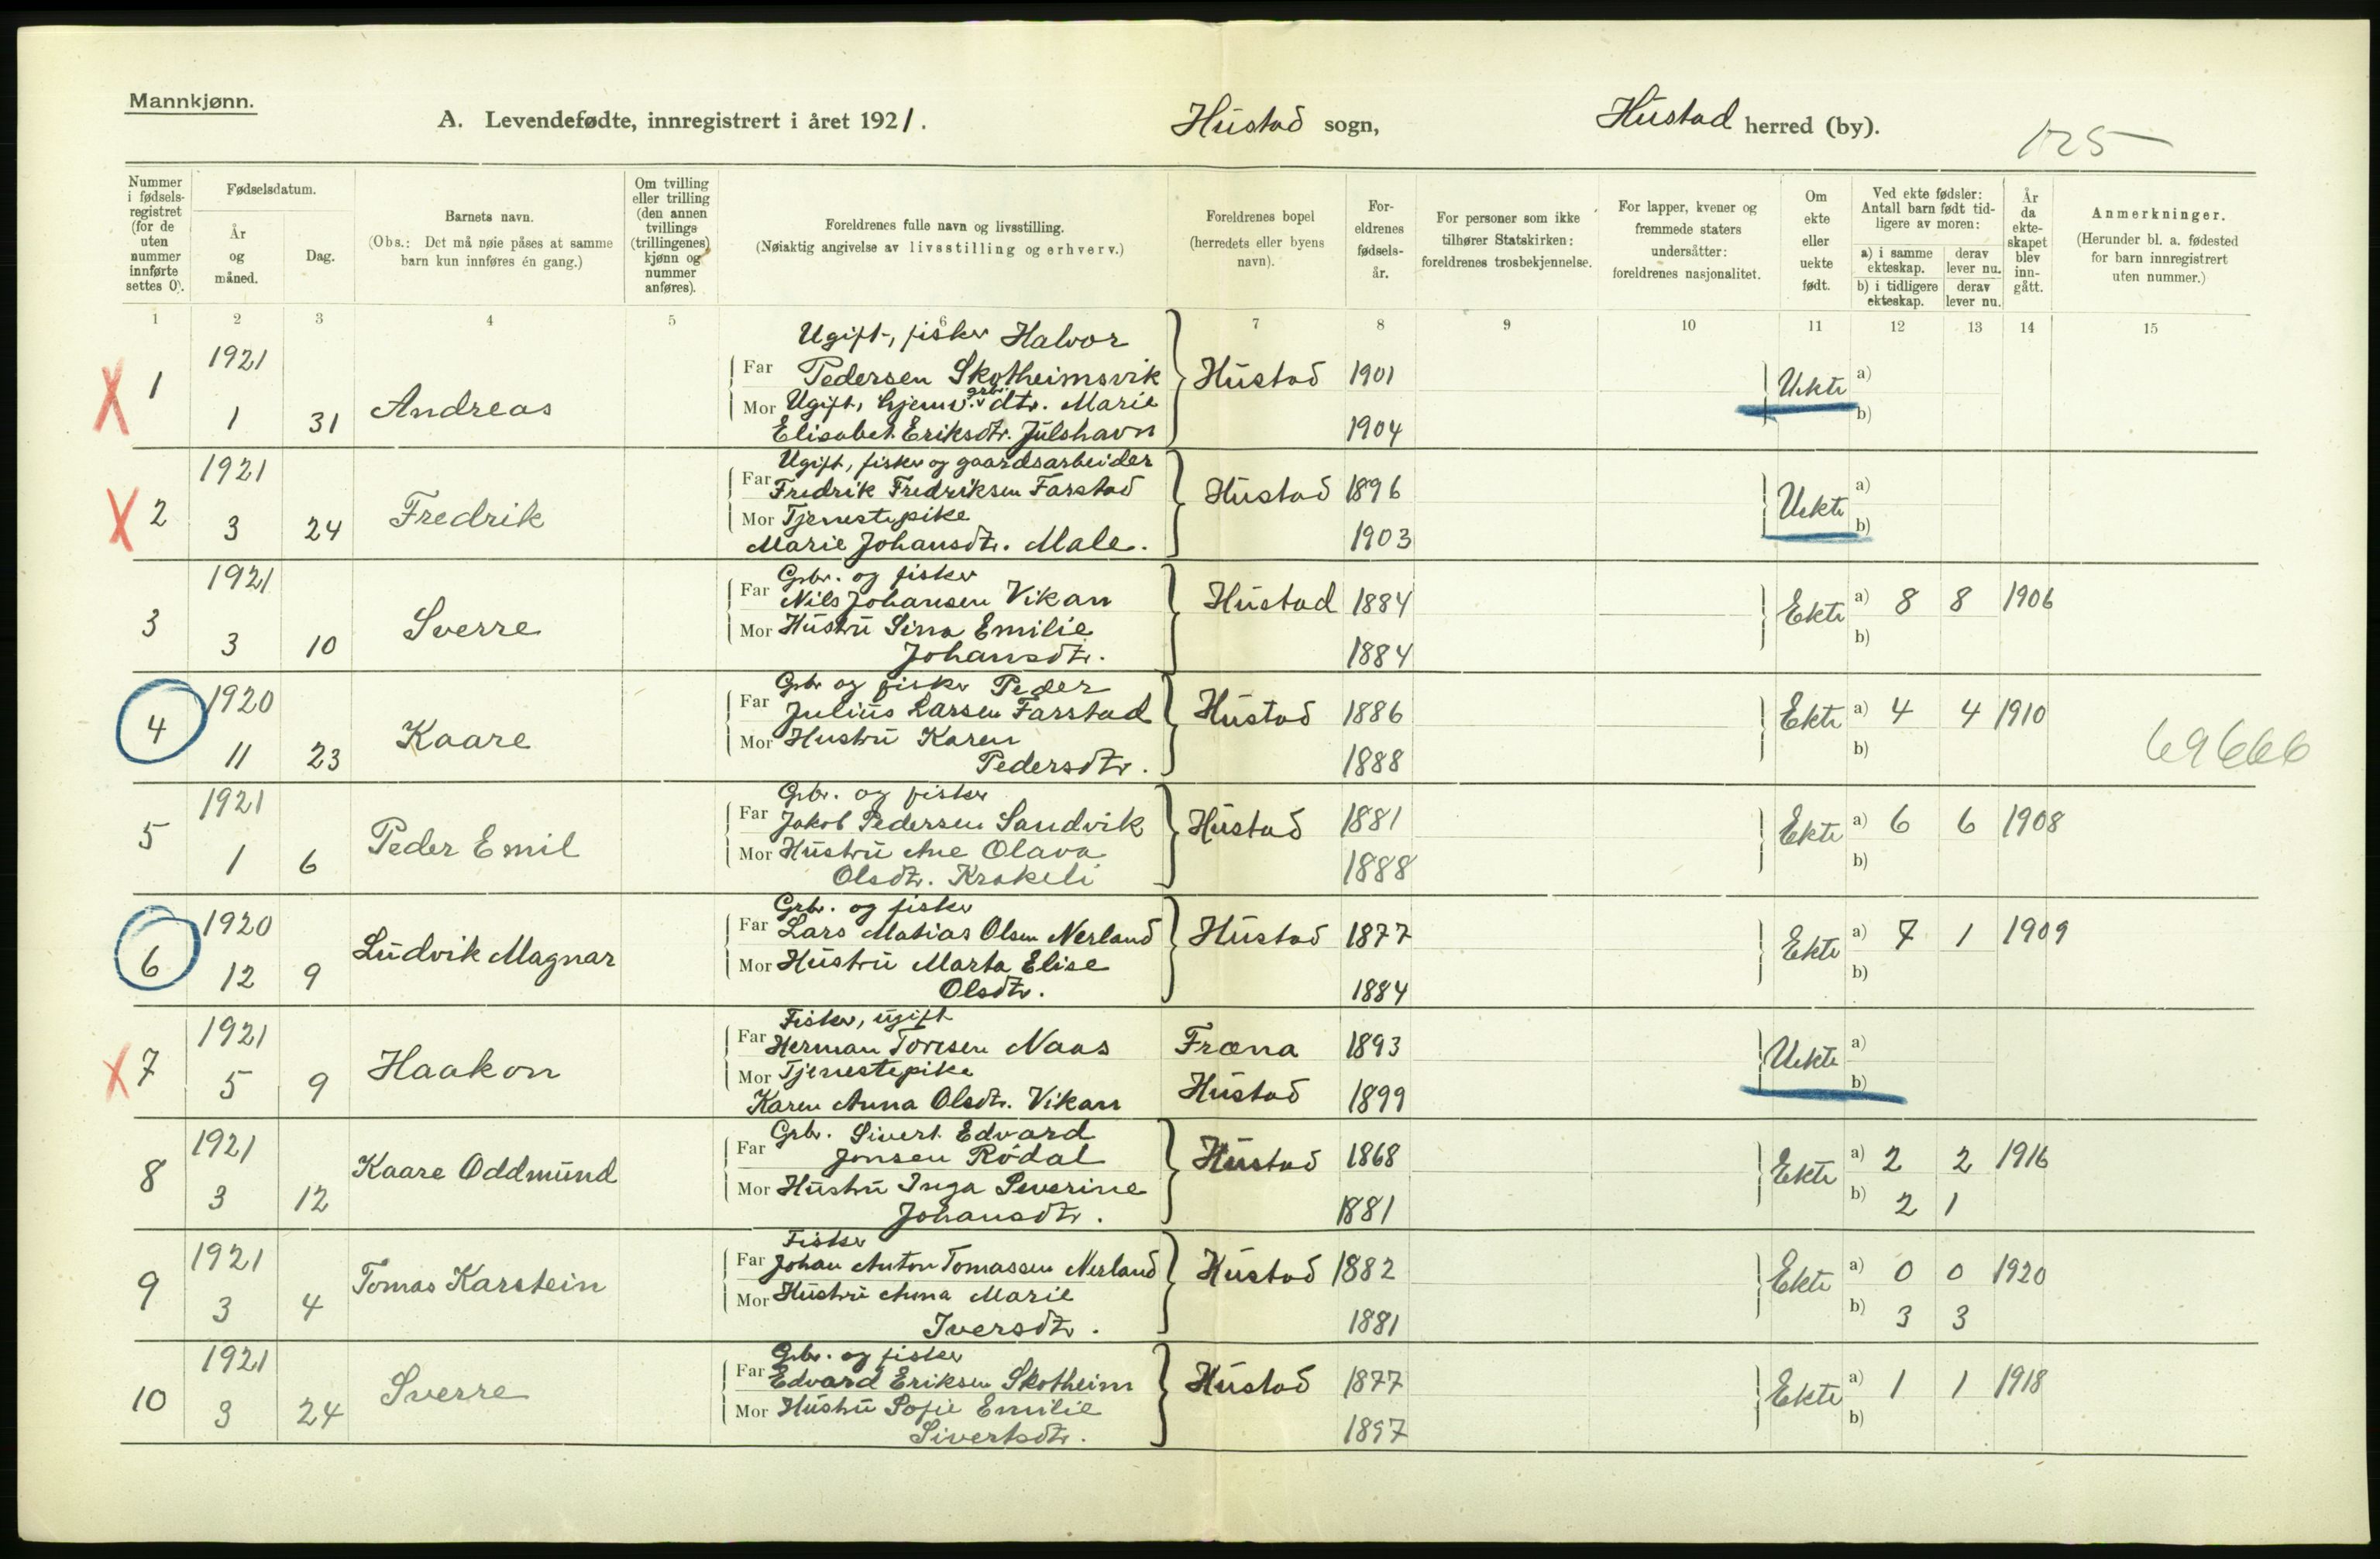 Mannkjønn.
A. Levendefødte, innregistrert i året 1921. Hustad sogn, Hustad herred (by). 125
Nummer i fødselsregistret (for de uten nummer innførte settes 0).
Fødselsdatum.
År og måned.
Dag.
Barnets navn.
(Obs.: Det må nøie påses at samme barn kun innføres én gang.)
Om tvilling eller trilling (den annen tvillings (trillingenes) kjønn og nummer anføres).
Foreldrenes fulle navn og livsstilling.
(Nøiaktig angivelse av livsstilling og erhverv.)
Foreldrenes bopel (herredets eller byens navn).
Foreldrenes fødselsår.
For personer som ikke tilhører Statskirken: foreldrenes trosbekjennelse.
For lapper, kvener og fremmede staters undersåtter: foreldrenes nasjonalitet.
Om ekte eller uekte født.
Ved ekte fødsler: Antall barn født tidligere av moren:
a) i samme ekteskap. derav lever nu.
b) i tidligere ekteskap. derav lever nu.
År da ekteskapet blev inngått.
Anmerkninger.
(Herunder bl. a. fødested for barn innregistrert uten nummer.)
1 2 3 4 5 6 7 8 9 10 11 12 13 14 15
X 1 1921 1 31 Andreas
Ugift, fisker Halvor
Far Pedersen Skotheimsvik Hustad 1901 Uekte a)
Mor Ugift, hjemv. grbr. dtr. Marie b)
Elisabet Eriksdtr. Julshavn 1904
X 2 1921 3 24 Fredrik
Ugift, fisker og gaardsarbeider
Far Fredrik Fredriksen Farstad Hustad 1896 Uekte a)
Mor Tjenestepike b)
Marie Johansdtr. Male. 1903
3 1921 3 10 Sverre
Grbr. og fisker
Far Nils Johansen Vikan Hustad 1884 Ekte a) 8 8 1906
Mor Hustru Sina Emilie b)
Johansdtr. 1884
4 1920 11 23 Kaare
Grbr og fisker Peder
Far Julius Larsen Farstad Hustad 1886 Ekte a) 4 4 1910
Mor Hustru Karen b) 69666
Pedersdtr. 1888
5 1921 1 6 Peder Emil
Grbr. og fisker
Far Jakob Pedersen Sandvik Hustad 1881 Ekte a) 6 6 1908
Mor Hustru Ane Olava b)
Olsdtr. Krakeli 1888
6 1920 12 9 Ludvik Magnar
Grbr. og fisker
Far Lars Matias Olsen Nerland Hustad 1877 Ekte a) 7 1 1909
Mor Hustru Marta Elise b)
Olsdtr. 1884
X 7 1921 5 9 Haakon
Fisker, ugift
Far Herman Toresen Naas Fræna 1893 Uekte a)
Mor Tjenestepike b)
Karen Anna Olsdtr. Vikan Hustad 1899
8 1921 3 12 Kaare Oddmund
Grbr. Sivert Edvard
Far Jonsen Rödal Hustad 1868 Ekte a) 2 2 1916
Mor Hustru Inga Severine b) 2 1
Johansdtr. 1881
9 1921 3 4 Tomas Karstein
Fisker
Far Johan Anton Tomassen Nerland Hustad 1882 Ekte a) 0 0 1920
Mor Hustru Anna Marie b) 3 3
Iversdtr. 1881
10 1921 3 24 Sverre
Grbr. og fisker
Far Edvard Eriksen Skotheim Hustad 1877 Ekte a) 1 1 1918
Mor Hustru Sofie Emilie b)
Sivertsdtr. 1897